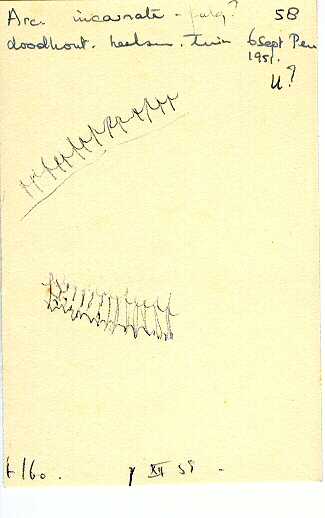 Arc. incarnata - ? 5B
doodhout. heelsum. tuin 6 Sept Pen
1951.
U?
t160. XII 59 -